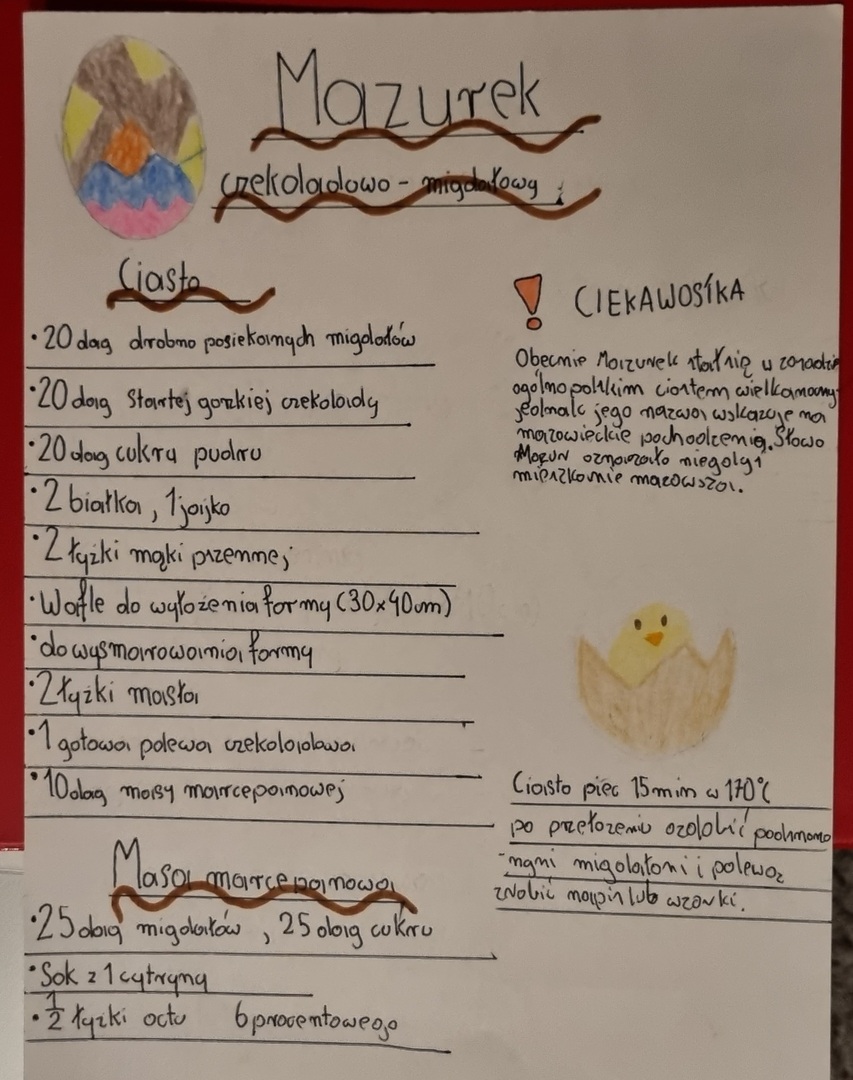 Mazurek
czekoladowo - migdałowy
Ciasto
• 20 dag drobno posiekanych migdałów
• 20 dag startej gorzkiej czekolady
• 20 dag cukru pudru
• 2 białka, 1 jajko
• 2 łyżki mąki przennej
• Wafle do wyłożenia formy (30×40cm)
• do wysmarowania formy
• 2 łyżki masła
• 1 gotowa polewa czekoladowa
• 10 dag masy marcepanowej
Masa marcepanowa
• 25 dag migdałów, 25 dag cukru
• Sok z 1 cytryny
• 1/2 łyżki octu 6 procentowego
! CIEKAWOSTKA
Obecnie Mazurek stał się w zasadzie
ogólnopolskim ciastem wielkanocny
jednak jego nazwa wskazuje na
mazowieckie pochodzenie. Słowo
Mazur oznaczało niegdyś
mieszkańie mazowsza.
Ciasto piec 15min w 170°C
po przełożeniu ozdobić podmomo
-nymi migdałami i polewą
zrobić napis lub wzorki.